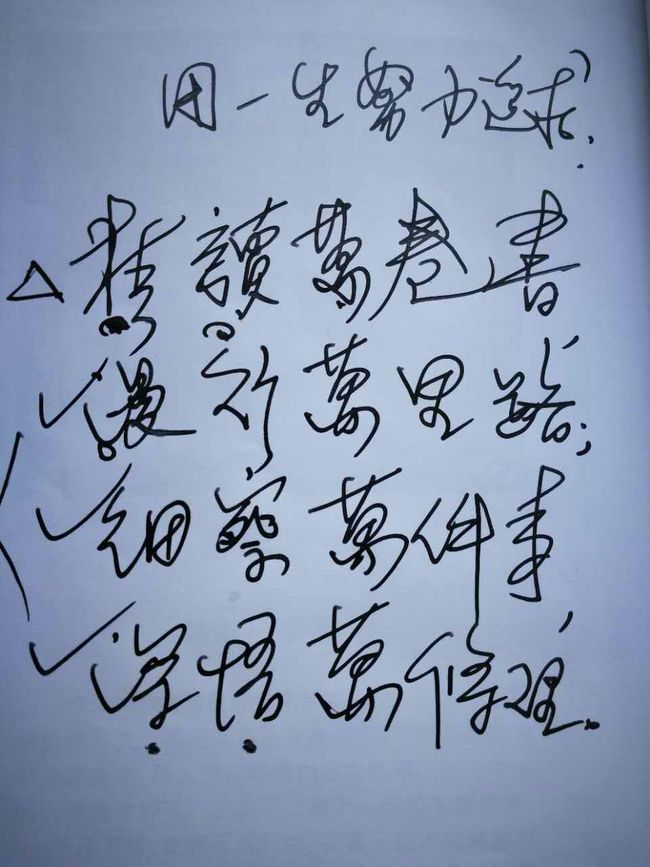 用一生努力追求,
△精讀萬卷書
漫行萬里路;
細察萬件事,
深悟萬條理.